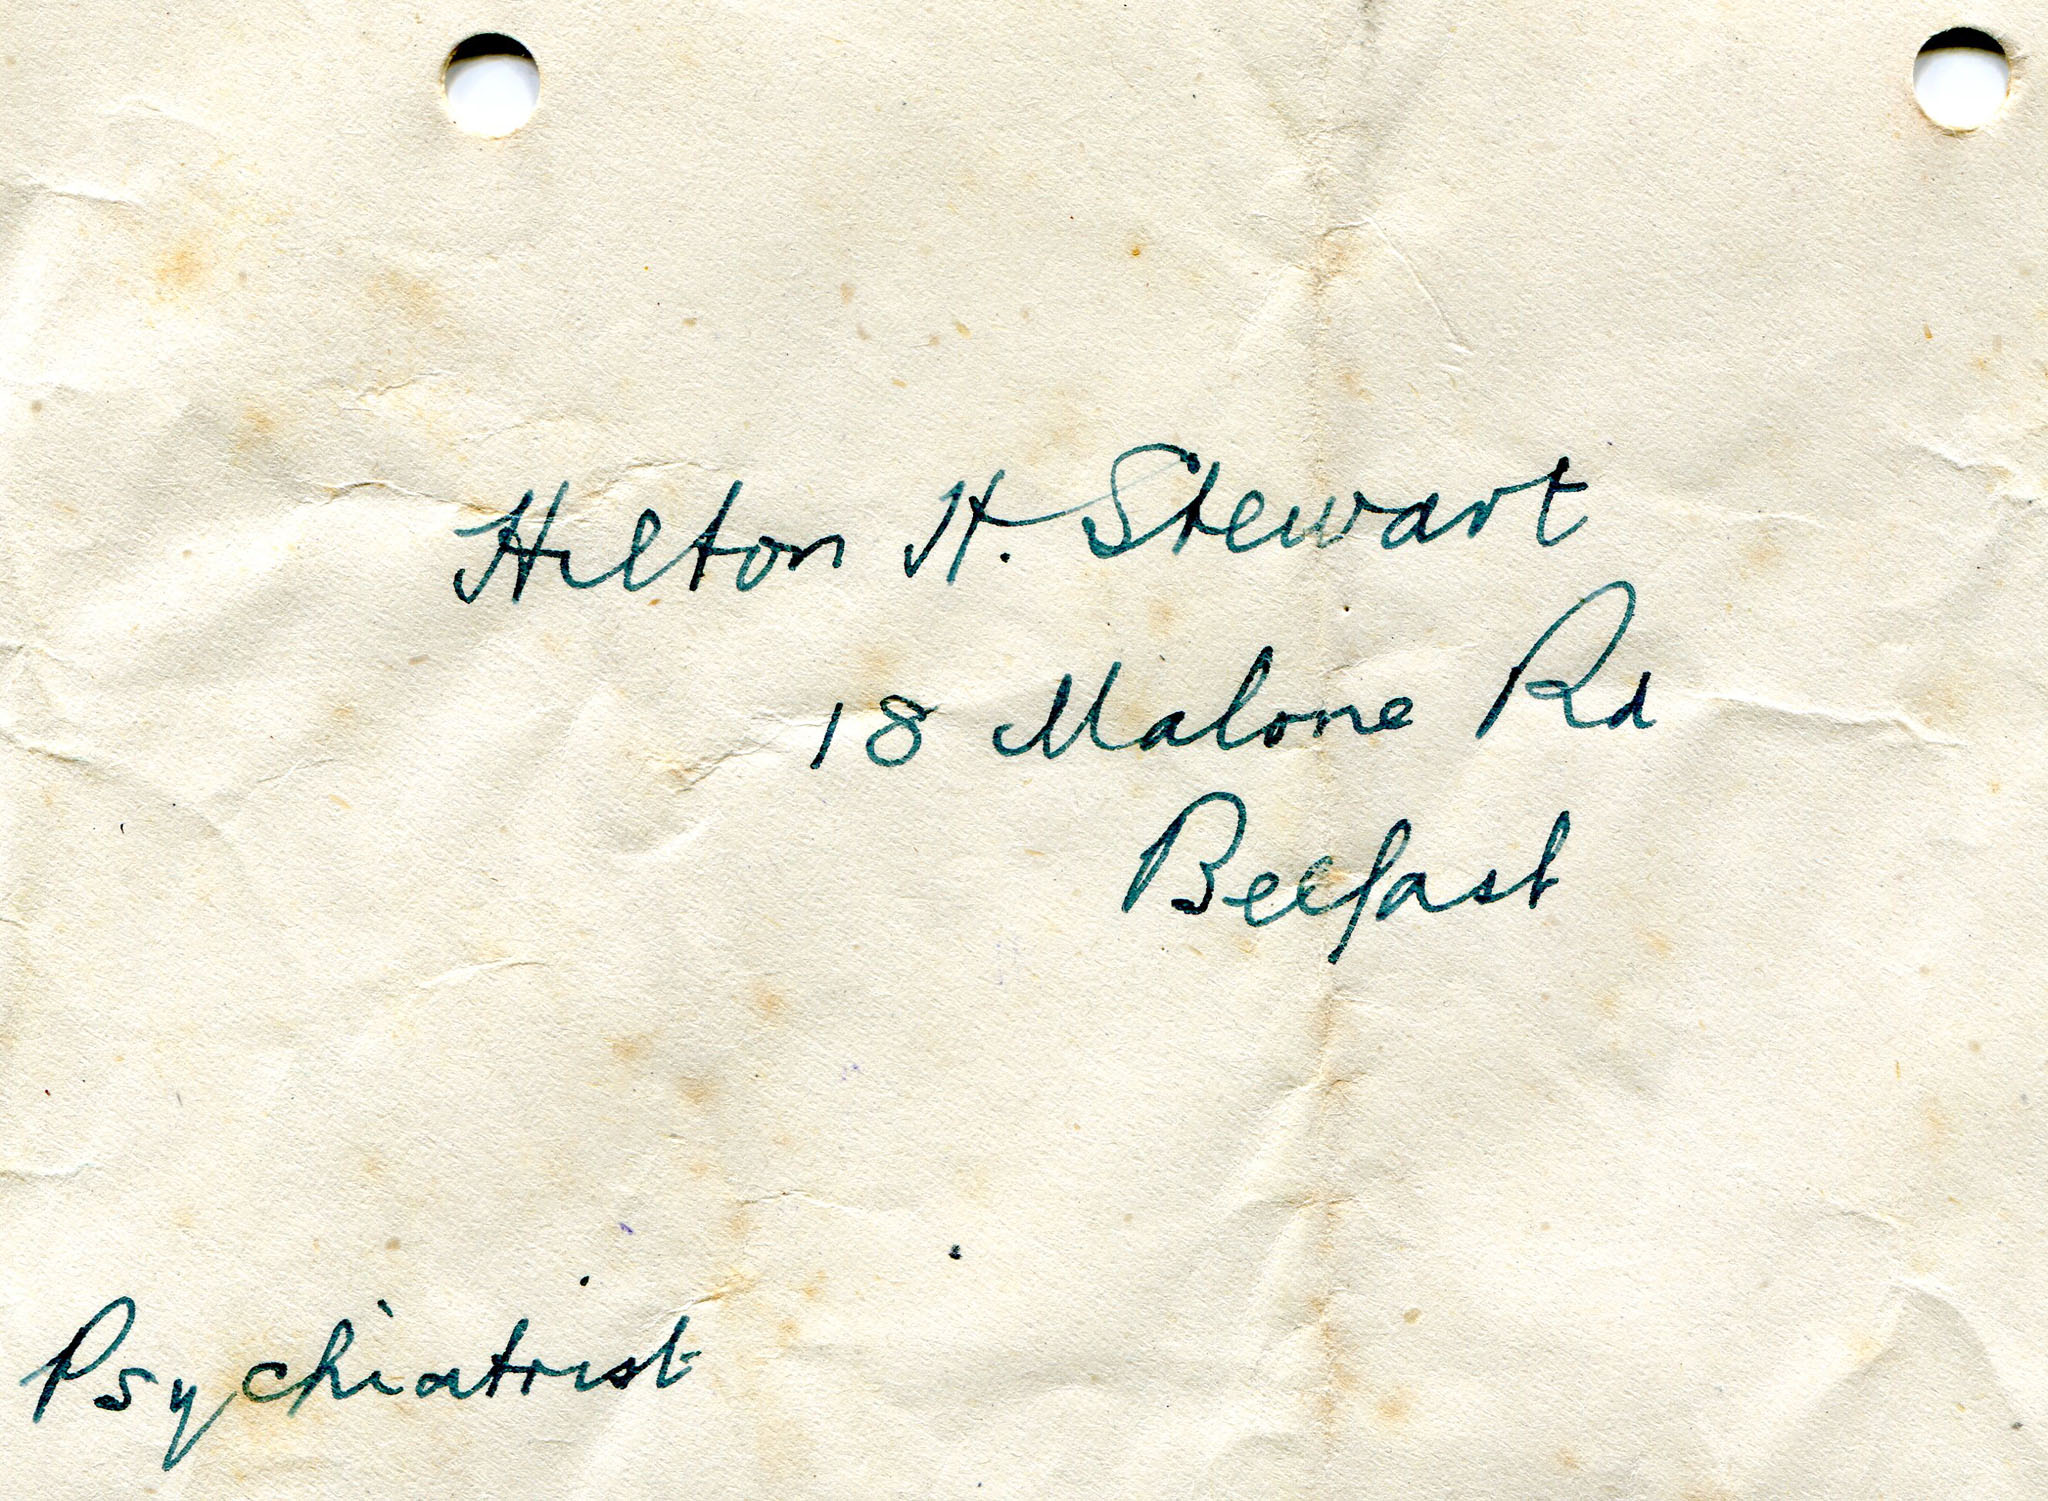 Hilton H. Stewart
18 Malone Rd
Belfast
Psychiatrist